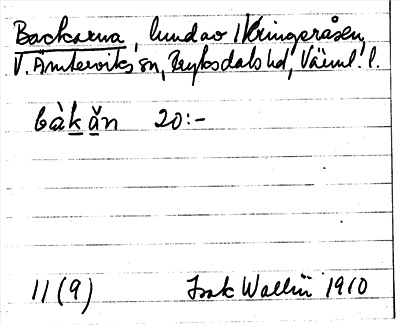 Backarna, lund av Kringeråsen,
V. Ämterviks sn, Fryksdals hd, Värml. l.
bàkăn 20:-
11(9) Isak Wallin 1910